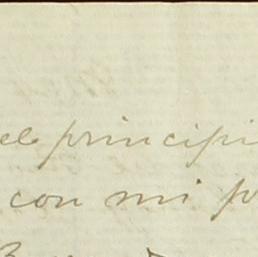 el principi
con mi p